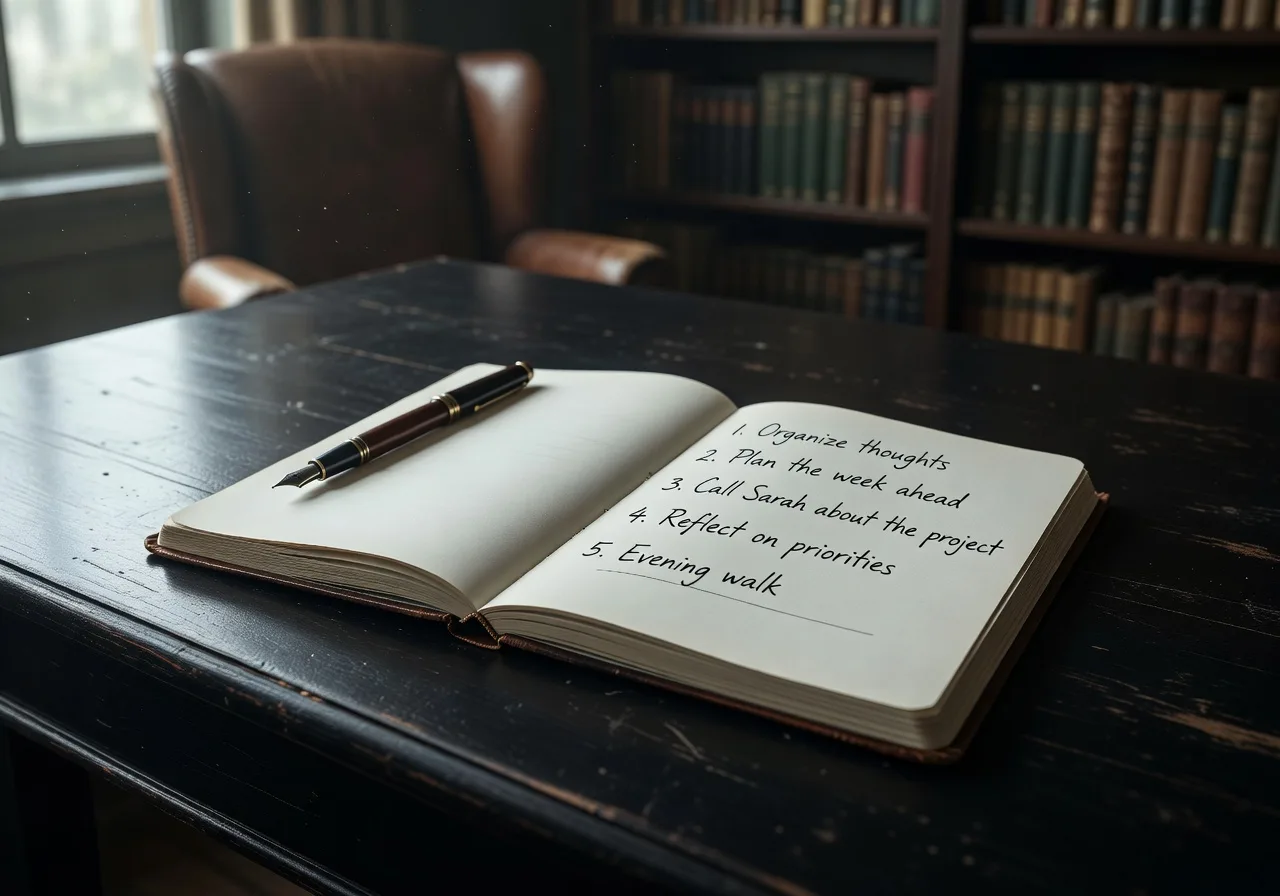 1. Organize thoughts
2. Plan the week ahead
3. Call Sarah about the project
4. Reflect on priorities
5. Evening walk